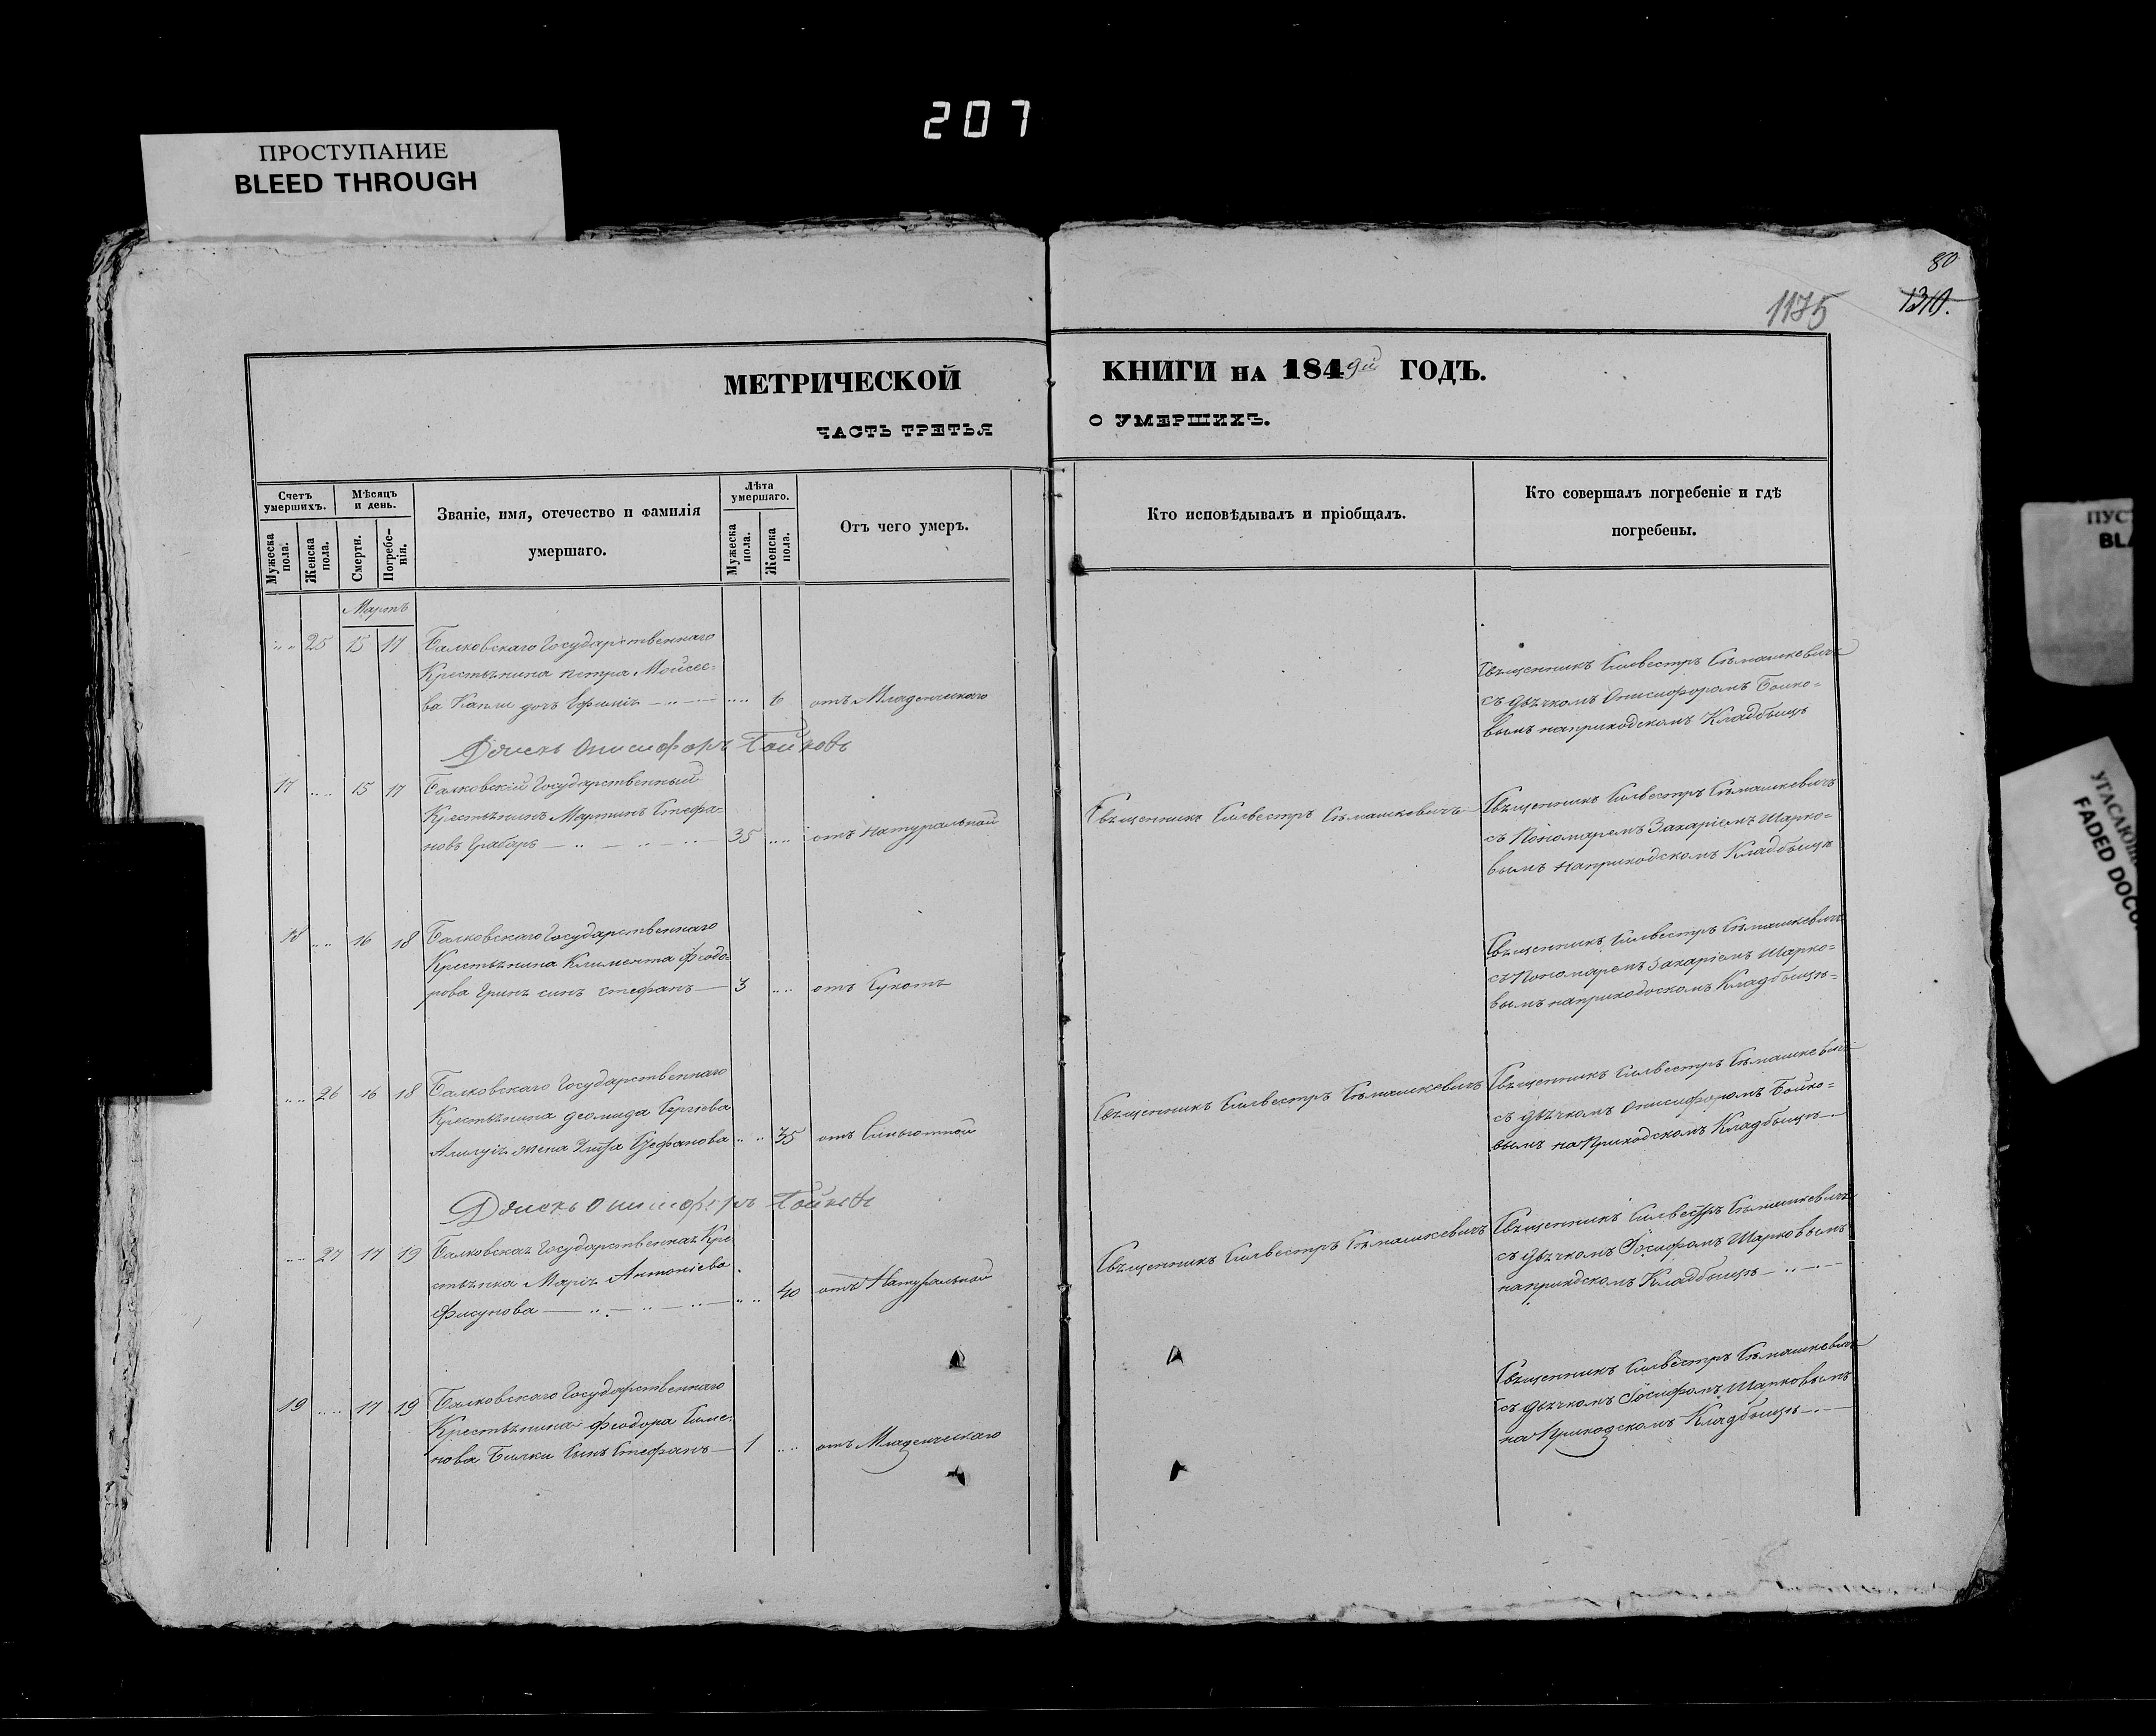 207
ПРОСТУПАНИЕ
BLEED THROUGH
80
1310.
1175
МЕТРИЧЕСКОЙ
КНИГИ НА 1849й ГОДЪ.
ЧАСТЬ ТРЕТЬЯ
О УМЕРШИХЪ.
Счетъ умершихъ.
Мѣсяцъ и день.
Званіе, имя, отечество и фамилія
умершаго.
Лѣта умершаго.
Отъ чего умеръ.
Кто исповѣдывалъ и пріобщалъ.
Кто совершалъ погребеніе и гдѣ
погребены.
Мужеска пола.
Женска пола.
Смерти.
Погребенія.
Мужеска пола.
Женска пола.
Мартъ
25 15 17 Балковскаго Государственнаго
Крестьянина петра Мойсее-
ва Капли дочь Ефимія 6 отъ Младенческаго
Священникъ Силвестръ Сѣмашкевичъ
съ дьячкомъ Онисифоромъ Бойко-
вымъ наприходскомъ Кладбыщѣ
Дячекъ Онисифоръ Бойковъ
17 15 17 Балковскій Государственный
Крестьянинъ Мартинъ Стефа-
новъ Грабарь 35 отъ натуральной
Священникъ Силвестръ Сѣмашкевичъ
Священникъ Силвестръ Сѣмашкевичъ
съ Пономаремъ Захаріемъ Шарко-
вымъ наприходскомъ Кладбыщѣ
18 16 18 Балковскаго Государственнаго
Крестьянина Климента Феодо-
рова Гринъ синъ стефанъ 3 отъ Сухотъ
Священникъ Силвестръ Сѣмашкевичъ
съ Пономаремъ Захаріемъ Шарко-
вымъ наприходоскомъ Кладбыщѣ
26 16 18 Балковскаго Государственнаго
Крестьянина деомида Сергіева
жена 35 отъ
Священникъ Силвестръ Сѣмашкевичъ
Священникъ Силвестръ Сѣмашкевичъ
съ дьячкомъ Онисифоромъ Бойко-
вымъ наПриходскомъ Кладбыщѣ
Дячекъ Онисифоръ Бойковъ
27 17 19 Балковская Государственная Кре
стьянка Марія Антоніева
Фисунова 40 отъ Натуральной
Священникъ Силвестръ Сѣмашкевичъ
Священникъ Силвестръ Сѣмашкевичъ
съ дьячкомъ Іосифомъ Шарковымъ
наприхдскомъ Кладбыщѣ
19 17 19 Балковскаго Государственнаго
Крестьянина феодора Симе-
нова Билки Сынъ Стефанъ 1 отъ Младенческаго
Священникъ Силвестръ Сѣмашкевичъ
съ дьячкомъ Іосифомъ Шарковымъ
на Приходскомъ Кладбыщѣ
ПУС
BLA
FADED DOCU